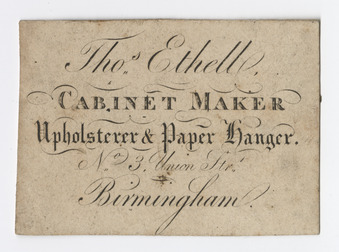 Thos. Ethell,
CABINET MAKER
Upholsterer & Paper Hanger.
No. 3, Union Str.
Birmingham.